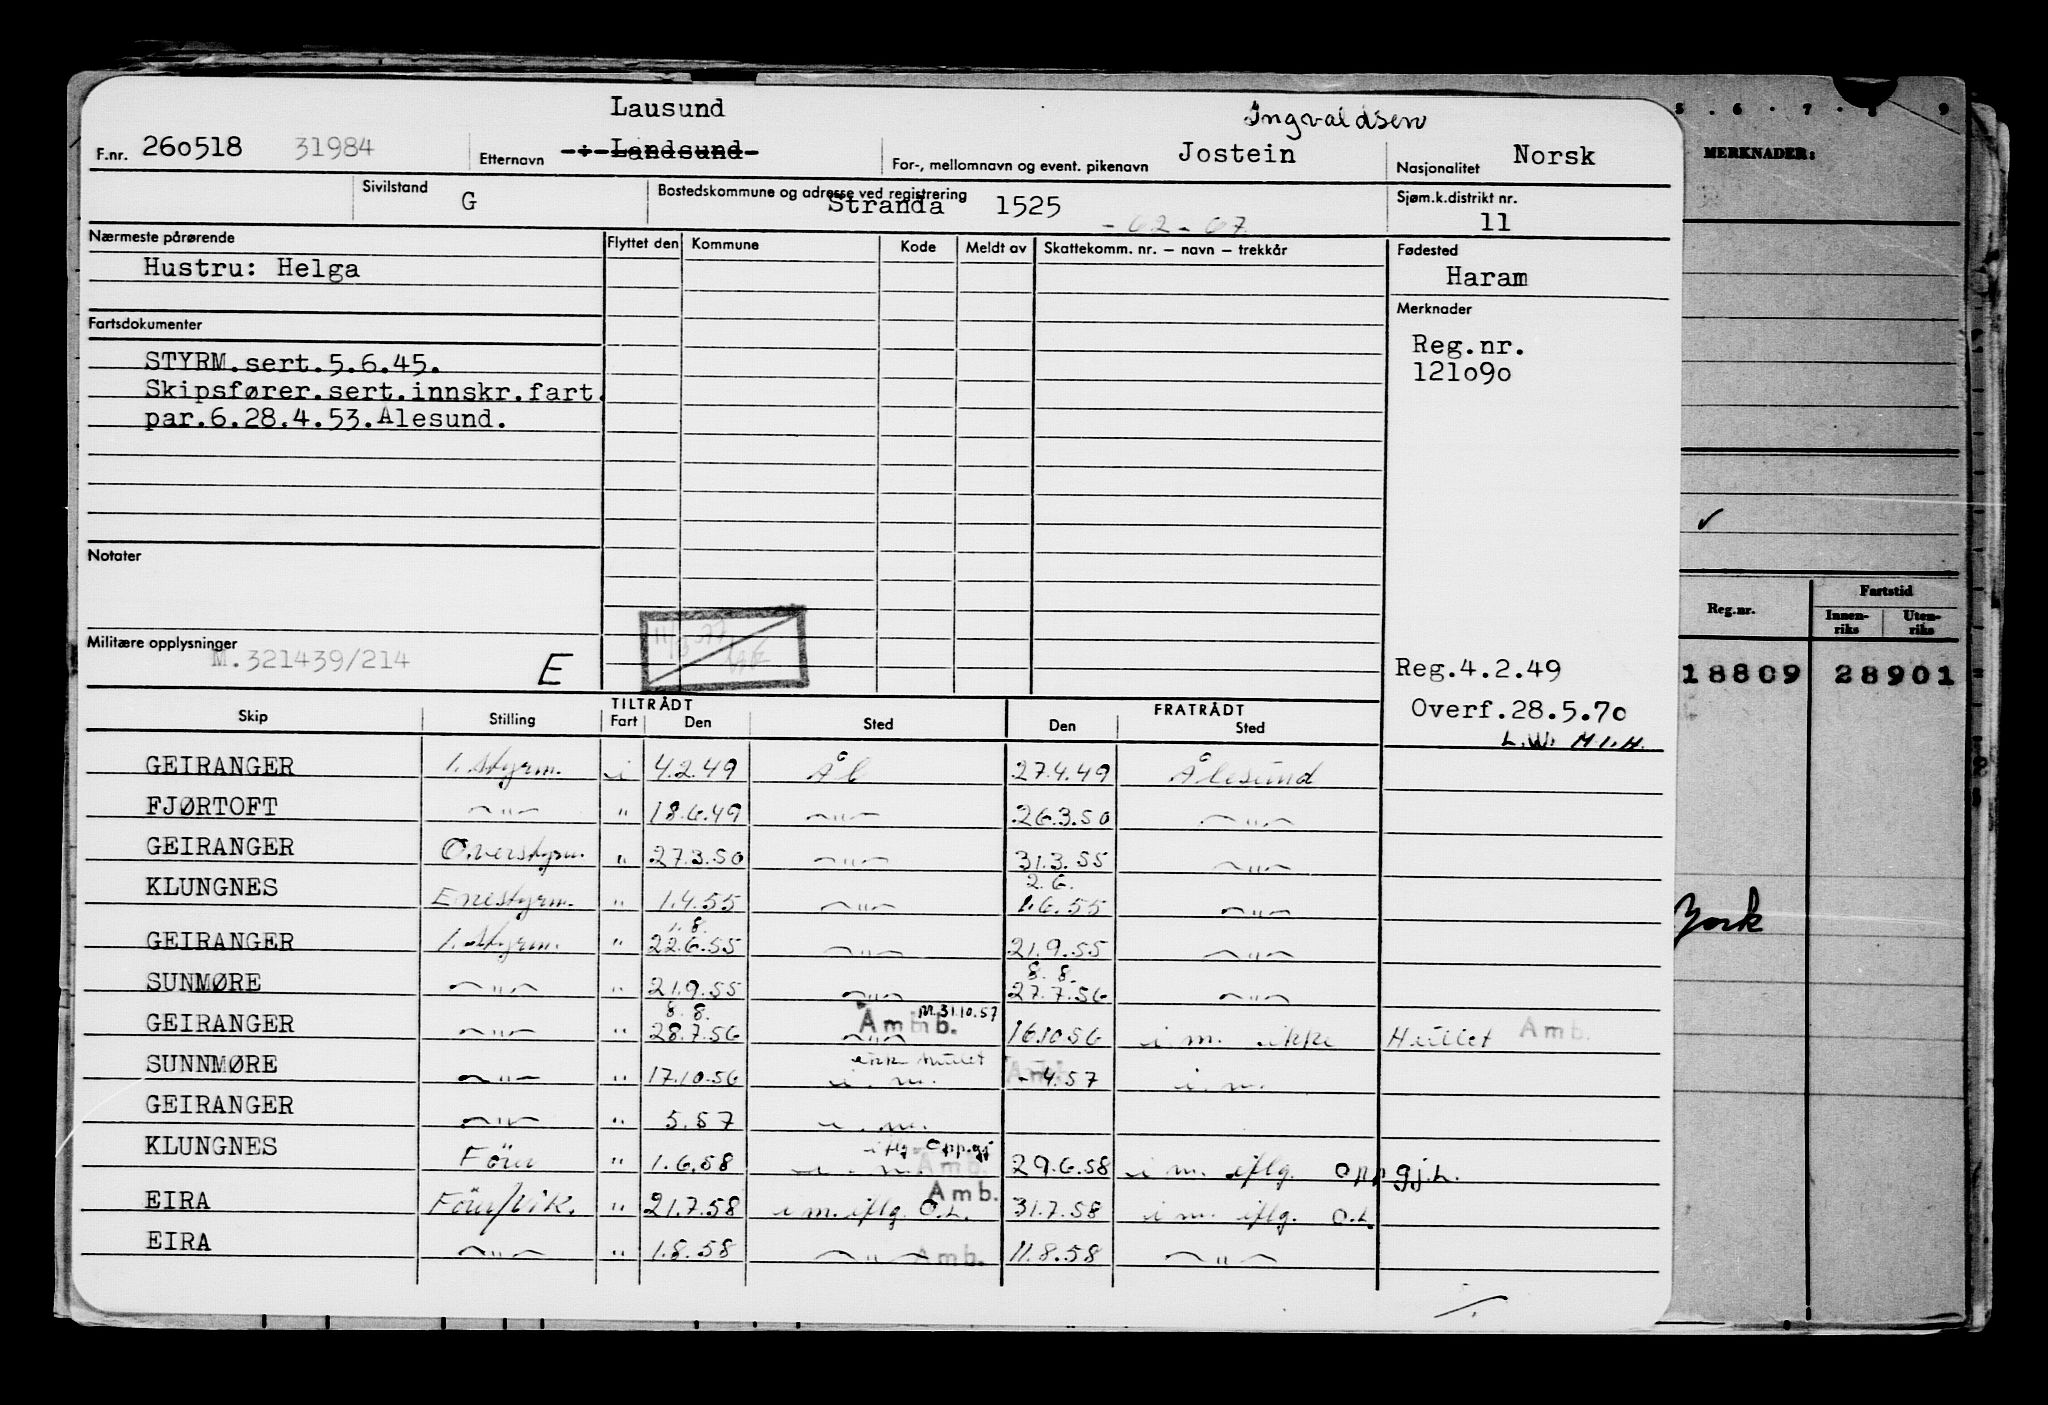 Lausund
Ingvaldsen
F.nr. 260518 31984 Etternavn Landsund For-, mellomnavn og event. pikenavn Jostein Nasjonalitet Norsk
Sivilstand G Bostedskommune og adresse ved registrering Stranda 1525 -02-07 Sjøm.k.distrikt nr. 11
Nærmeste pårørende Flyttet den Kommune Kode Meldt av Skattekomm. nr. – navn – trekkår Fødested
Hustru: Helga Haram
Fartsdokumenter Merknader
STYRM.sert.5.6.45. Reg.nr.
Skipsfører.sert.innskr.fart. 121090
par.6.28.4.53.Ålesund.
Notater
Militære opplysninger
M.321439/214 E Reg.4.2.49
Overf.28.5.70
L.W. M.I.H.
TILTRÅDT FRATRÅDT
Skip Stilling Fart Den Sted Den Sted
GEIRANGER 1. Styrm. i 4.2.49 Ål 27.4.49 Ålesund
FJØRTOFT —"— " 18.6.49 —"— 26.3.50 —"—
GEIRANGER Overstyrm. " 27.3.50 —"— 31.3.55 —"—
2.6.
KLUNGNES Enestyrm. " 1.4.55 —"— 1.6.55 —"—
1.8.
GEIRANGER 1. Styrm. " 22.6.55 —"— 21.9.55 —"—
8. 8.
SUNMØRE —"— " 21.9.55 —"— 27.7.56 —"—
8.8. M.31.10.57
GEIRANGER —"— " 28.7.56 Amb. —"— 16.10.56 i m. ikke Hullet Amb.
ikke hullet
SUNNMØRE —"— " 17.10.56 i. m. Amb. - 4.57 i. m.
GEIRANGER —"— " 5.57 i. m.
iflg. Oppgj
KLUNGNES Förer " 1.6.58 i. m. Amb. 29.6.58 i m. iflg. oppgj.L.
Amb.
EIRA Förer/Vik. " 21.7.58 i m. iflg. O.L. 31.7.58 i m. iflg. O.L
EIRA —"— " 1.8.58 —"— Amb. 11.8.58 —"—
5 . 6 . 7 . 8 . 9
MERKNADER:
Reg.nr. Fartstid
Innenriks Utenriks
18809 28901
York